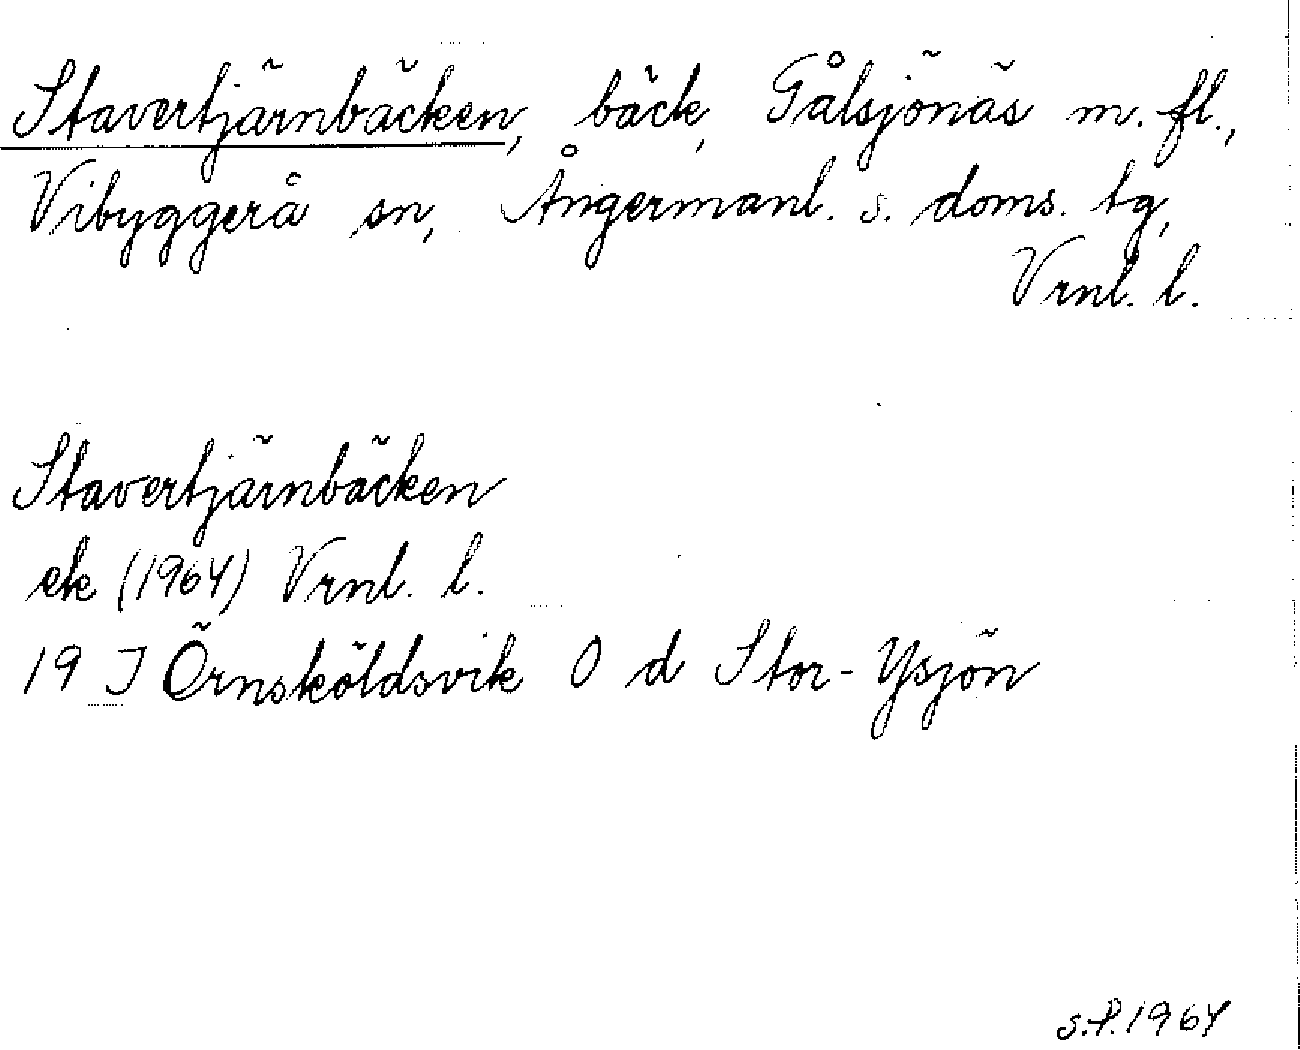 Stavertjärnbäcken, bäck, Gålsjönäs m. fl.,
Vibyggerå sn, Ångermanl. s. doms. tg,
Vrnl. l.
Stavertjärnbäcken
ek (1964) Vrnl. l.
19 J Örnsköldsvik O d Stor-Ysjön
s.f.1964